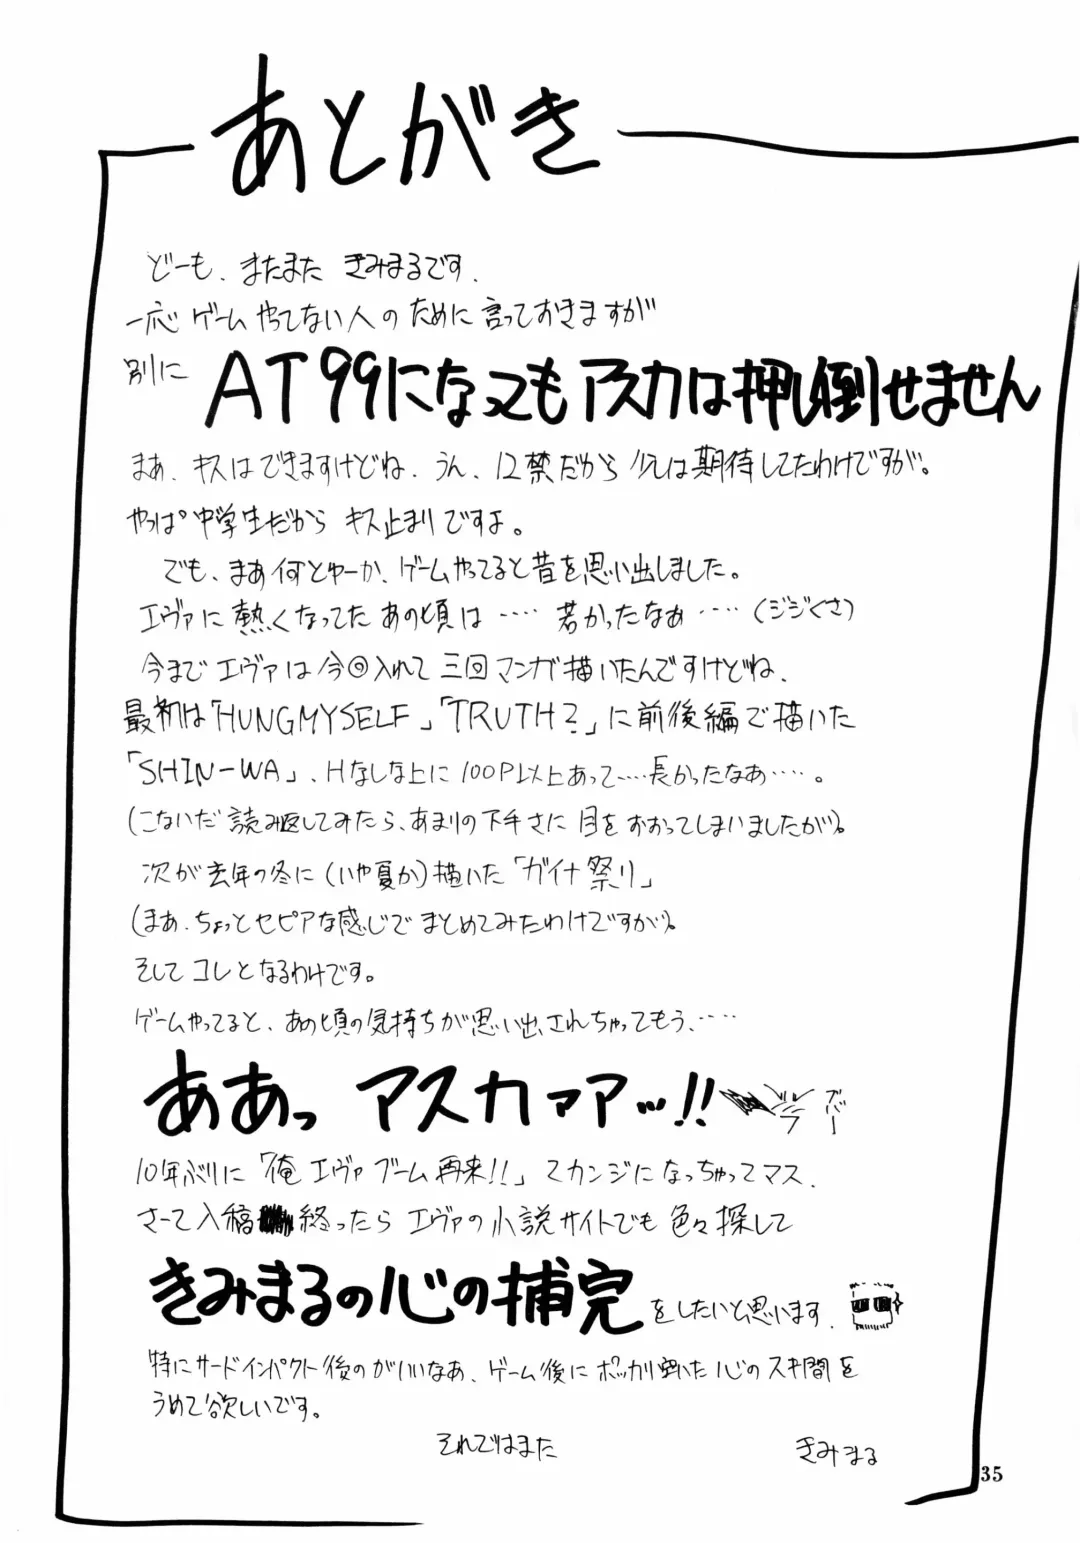 あとがき
どーも、またまた きみまるです.
一応ゲームやってない人のために言っておきますが
別に AT99になってもアスカは押し倒せません
まあ、キスはできますけどね、うん、12禁だから少しは期待してたわけですが。
やっぱ中学生だから キス止まりですよ。
でも、まあ何とゆーか、ゲームやってると昔を思い出しました。
エヴァに熱くなってた あの頃は‥‥ 若かったなぁ‥‥(ジジくさ)
今まで エヴァは今回入れて三回マンガ描いたんですけどね、
最初は「HUNGMYSELF」「TRUTH?」に前後編で描いた
「SHIN-WA」、Hなし な上に 100P以上あって‥‥長かったなあ‥‥。
(こないだ 読み返してみたら、あまりの下手さに 目をおおってしまいましたが)。
次が去年の冬に(いや夏か)描いた「ガイナ祭り」
(まあ、ちょっとセピアな感じで まとめてみたわけですが)。
そして コレとなるわけです。
ゲームやってると、あの頃の気持ちが思い出されちゃってもう、‥‥
ああっ アスカァア…!!
ズバー
10年ぶりに「俺 エヴァ ブーム 再来!!」てカンジになっちゃってマス.
さーて入稿 終ったら エヴァの小説サイトでも 色々探して
きみまるの心の補完をしたいと思います.
特にサードインパクト後のがいいなあ、ゲーム後にポッカリ空いた 心のスキ間を
うめて欲しいです。
それではまた きみまる
35